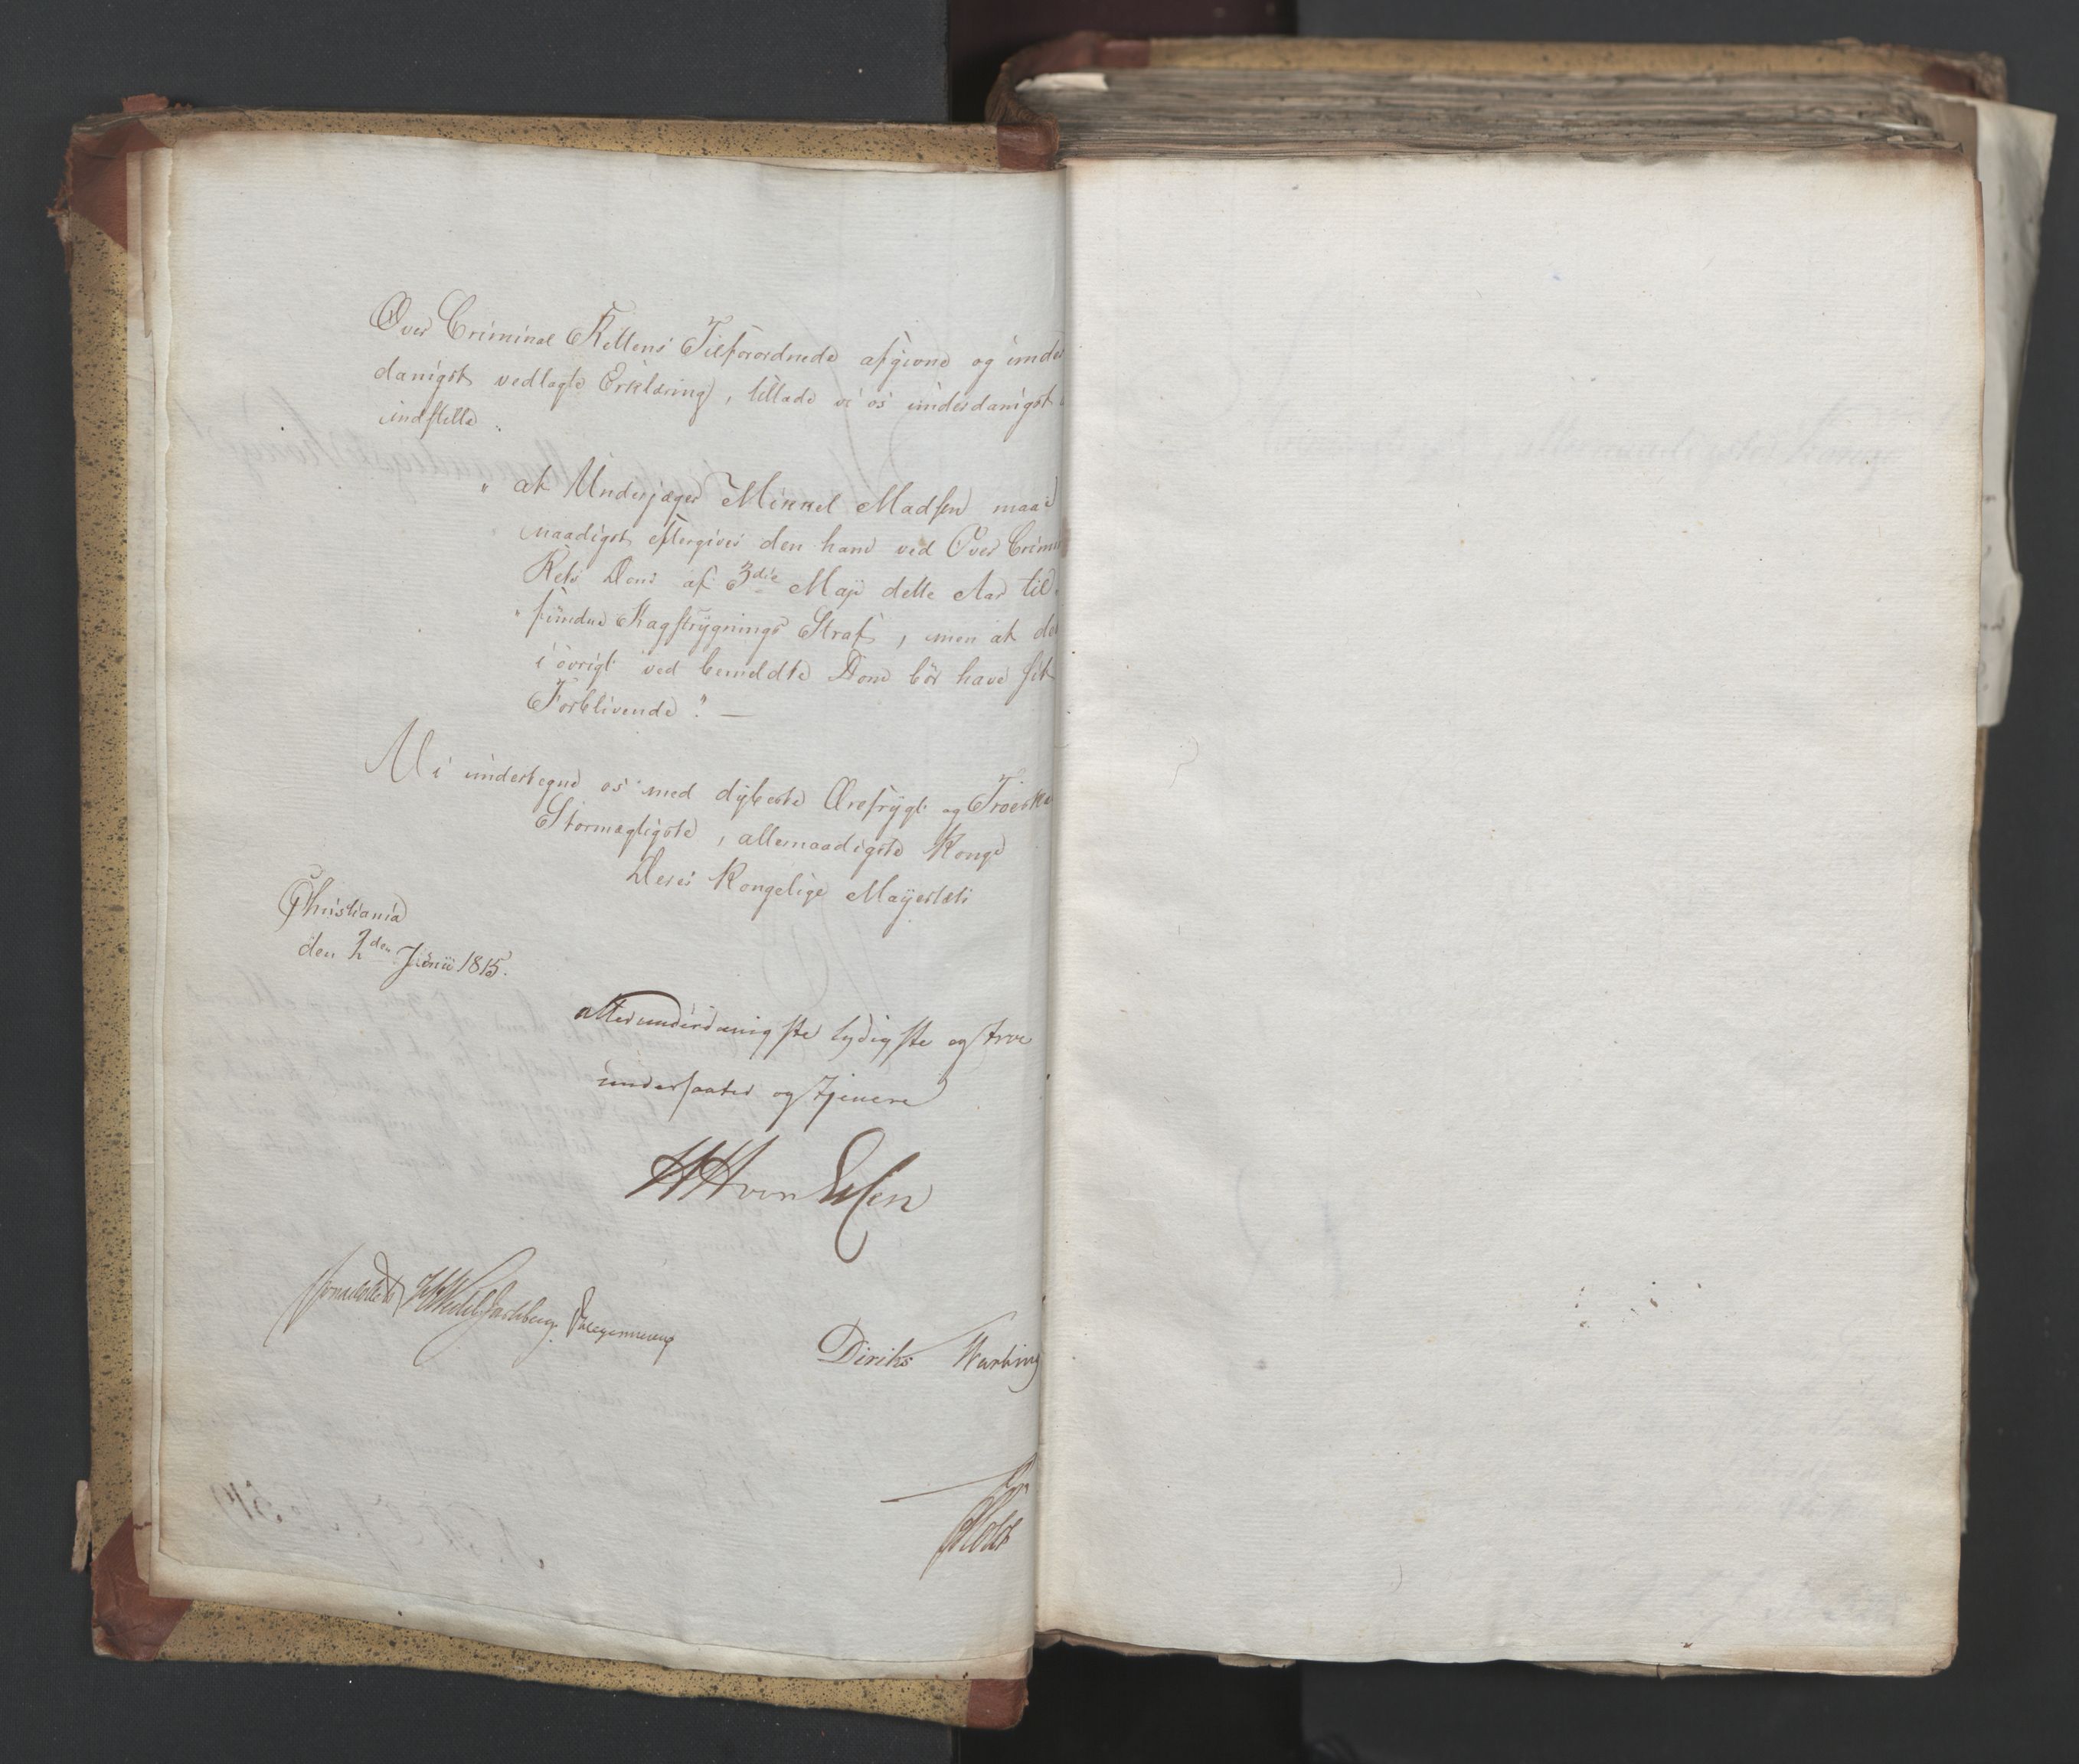 Over Criminal Rettens Tilforordnede afgivne og under
danigst vedlagte Erklæring, tillade vi os underdanigst
indstille
" at Underjæger Mikkel Madsen maae
naadigst eftergives den ham ved Over Crimi
Rets Dom af 3die Maji dette Aar til
" fundne Kagstrygnings Straf, men at det
i övrigt ved bemeldte Dom bör have sit
Forblivende". —
Vi undertegne os med dybeste Ærefrygt og Troeska
Stormægtigste, allernaadigste Konge
Deres Kongelige Mayestæts
Christiania
den 2den Junii 1815.
allerunderdanigste lydigste og troe
undersaater og tjenere
HHvonEssen
HWedelJarlsberg
Diriks